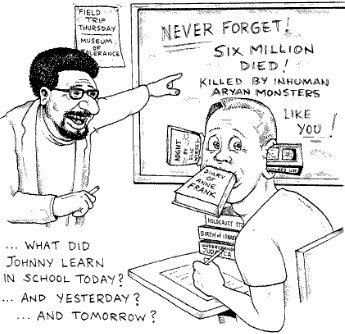 FIELD
TRIP
THURSDAY
MUSEUM
OF
TOLERANCE
NEVER FORGET!
SIX MILLION
DIED!
KILLED BY INHUMAN
ARYAN MONSTERS
LIKE
YOU!
NIGHT
BY
DIARY
OF
ANNE
FRANK
HOLOCAUST
BIRTH OF ISRAEL
... WHAT DID
JOHNNY LEARN
IN SCHOOL TODAY?
... AND YESTERDAY?
... AND TOMORROW?